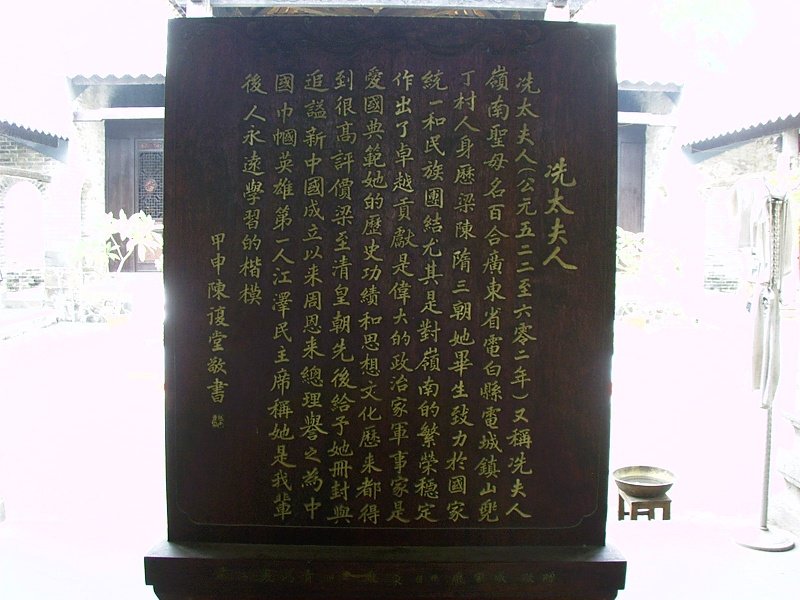 冼太夫人
冼太夫人(公元五二二至六零二年)又稱冼夫人
嶺南聖母名百合廣東省電白縣電城鎮山兜
丁村人身歷梁陳隋三朝她畢生致力於國家
統一和民族團結尤其是對嶺南的繁榮穩定
作出了卓越貢獻是偉大的政治家軍事家是
愛國典範她的歷史功績和思想文化歷来都得
到很高評價梁至清皇朝先後給予她冊封與
追謚新中國成立以来周恩来總理譽之為中
國巾幗英雄第一人江澤民主席稱她是我輩
後人永遠學習的楷模
甲申陳復堂敬書